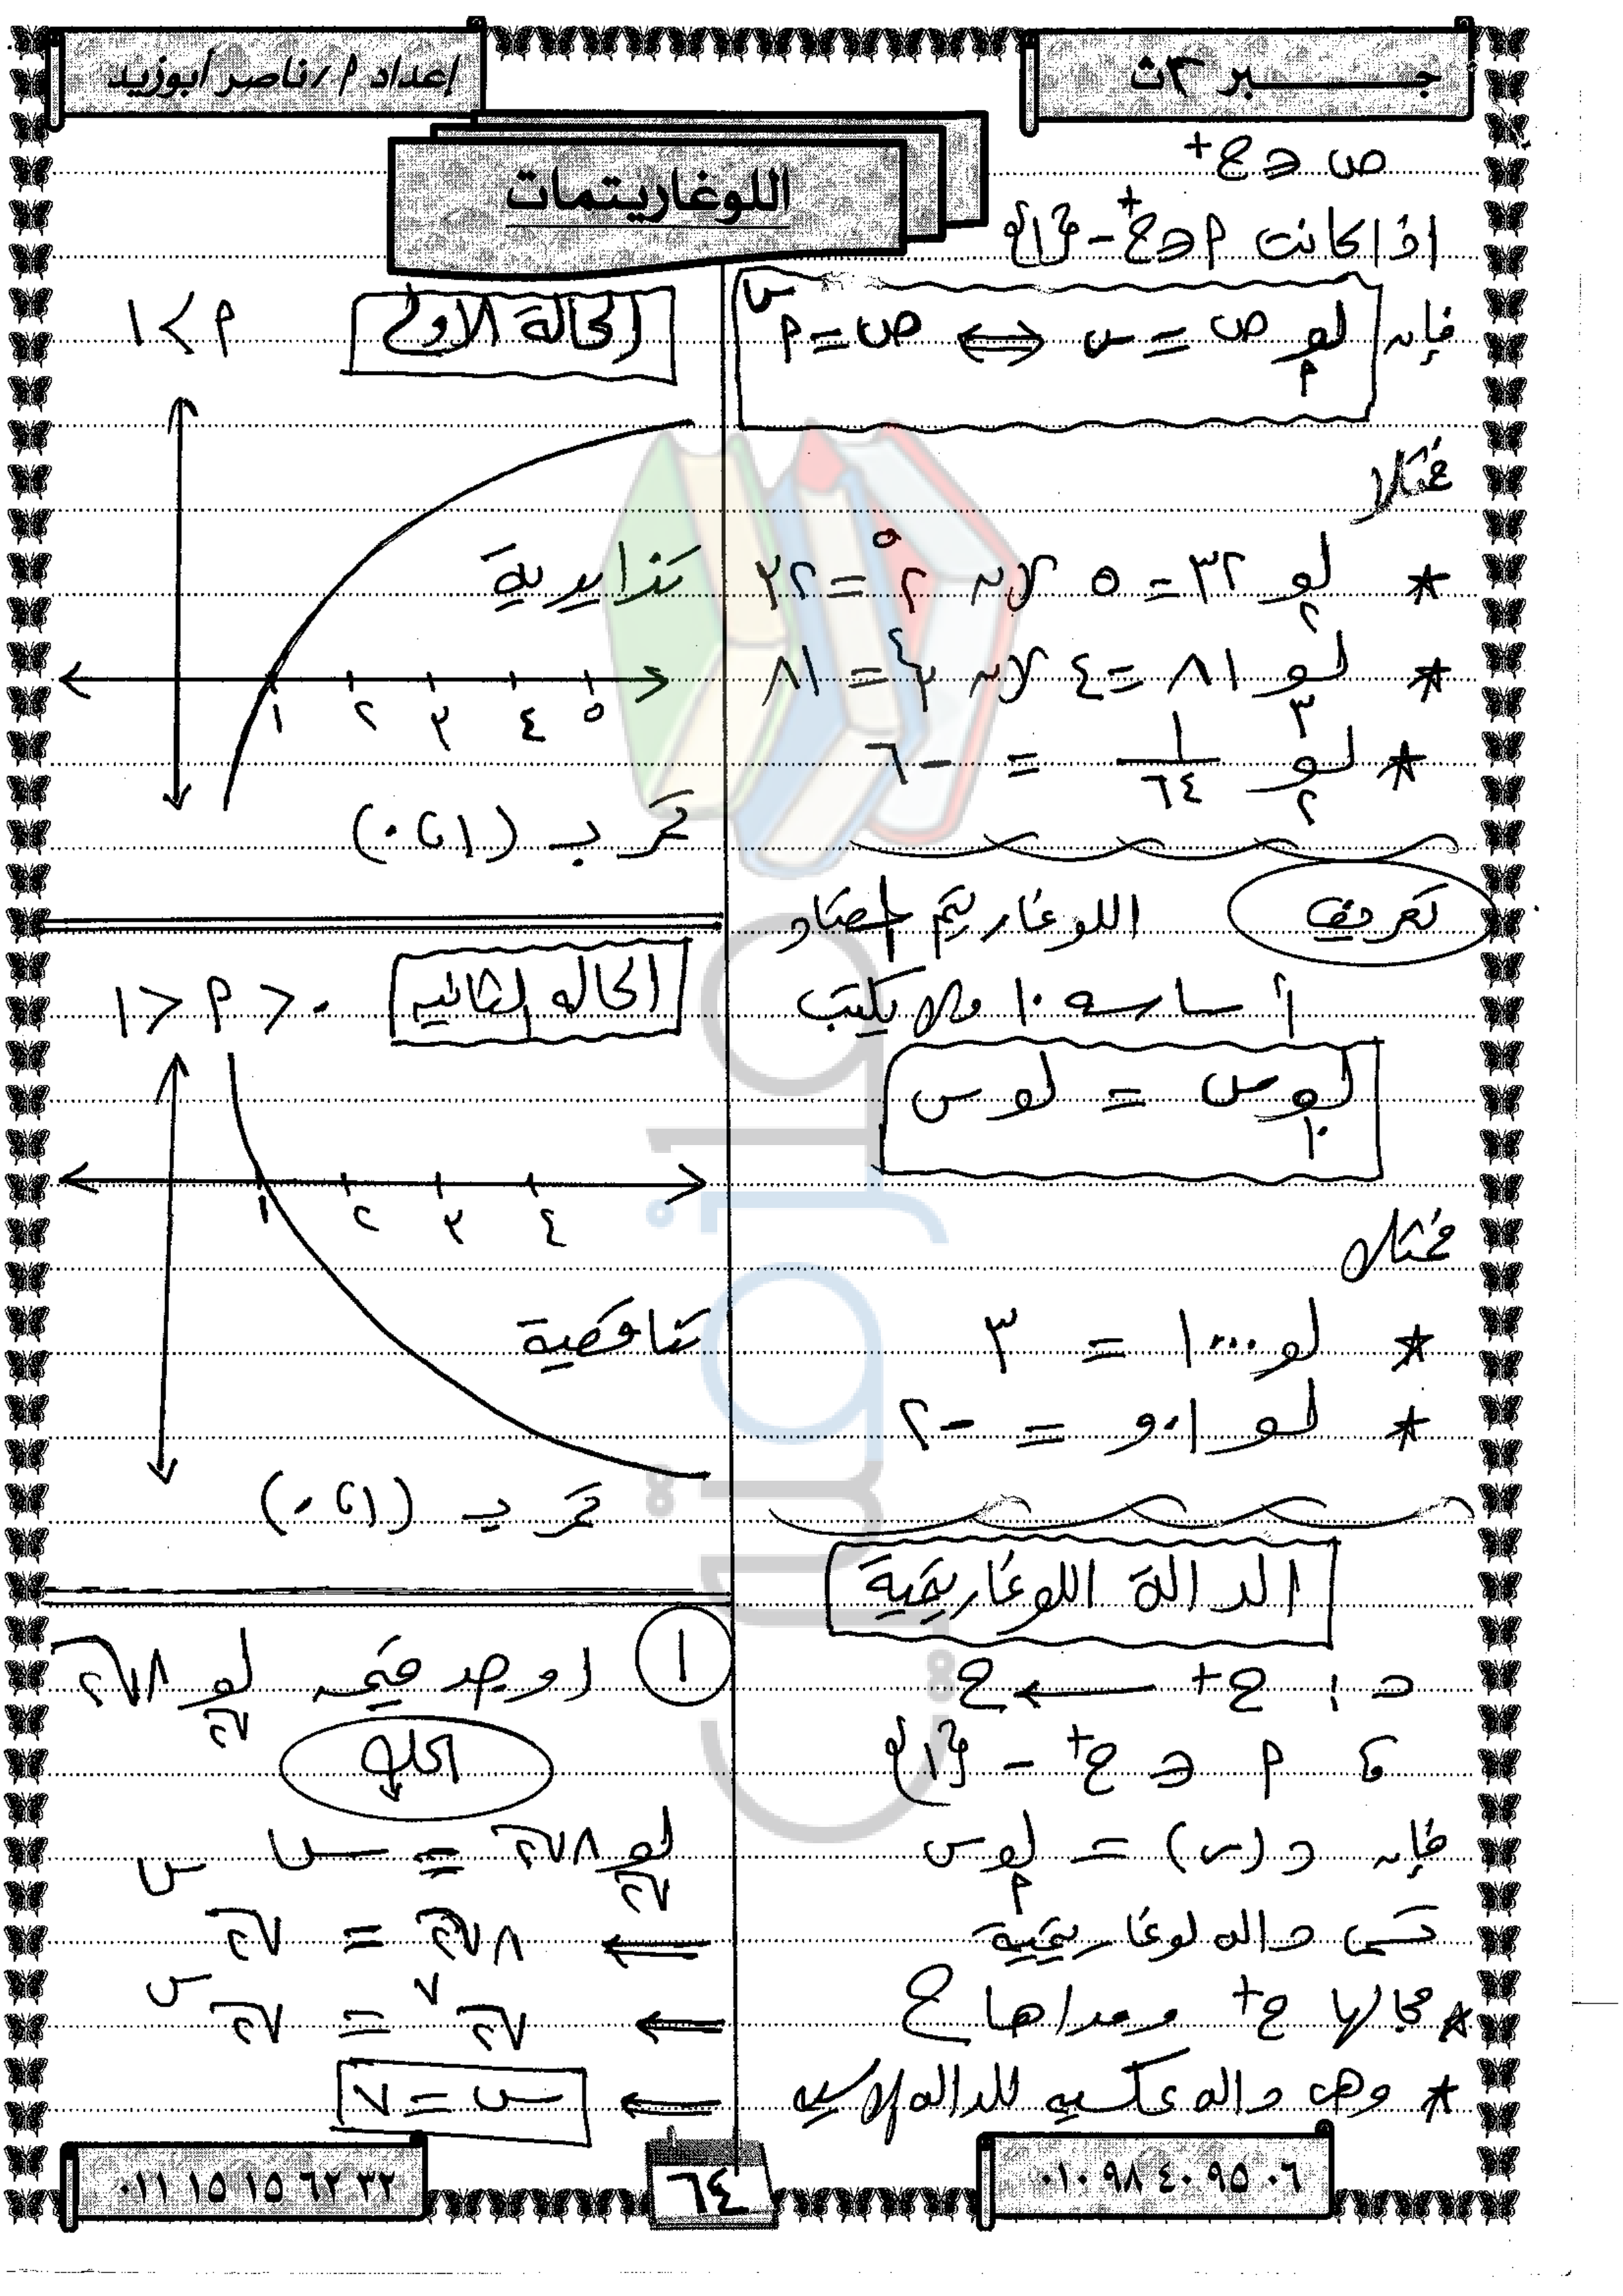 جـــــبر ٣ث
إعداد م / ناصر أبوزيد
اللوغاريتمات
ص ∈ ح+
اذا كانت م ∈ ح+ - {١}
فإن لو م ص = س ⟺ ص = م^س
فمثلا
* لو ٢ ٣٢ = ٥ لان ٢^٥ = ٣٢
* لو ٣ ٨١ = ٤ لان ٣^٤ = ٨١
* لو ٢ ١/٦٤ = -٦
تعريف اللوغاريتم المعتاد
أساسه ١٠ ولا يكتب
لو ١٠ س = لو س
فمثلا
* لو ١٠٠٠ = ٣
* لو ٠١و = -٢
الدالة اللوغاريتمية
د : ح+ ← ح
، م ∈ ح+ - {١}
فإن د (س) = لو م س
تسمى داله لوغاريتمية
* مجالها ح+ ومداها ح
* وهى داله عكسيه للداله الاسيه
الحالة الاولى م > ١
تزايدية
١ ٢ ٣ ٤ ٥
تمر بـ (١ ، ٠)
الحاله الثانيه ٠ < م < ١
١ ٢ ٣ ٤
تناقصية
تمر بـ (١ ، ٠)
١ اوجد قيمه لو √٢ ٨√٢
الحل
لو √٢ ٨√٢ = س
⇐ ٨√٢ = √٢^س
⇐ √٢^٧ = √٢^س
⇐ س = ٧
٠١٠ ٩٨ ٤٠ ٩٥ ٠٦
٦٤
٠١١ ١٥ ١٥ ٦٢ ٣٢